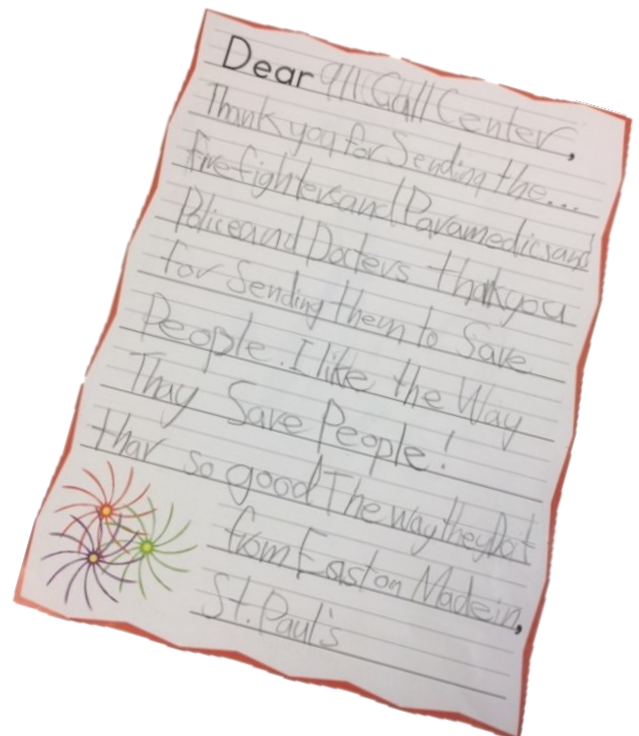 Dear 911 Call Center,
Thank you for Sending the...
firefightersand Paramedicsand
Policeand Docters thankyou
for Sending them to Save
People. I like the Way
Thay Save People!
thar so good The way they Dot
from Easton Madein,
St. Paul's